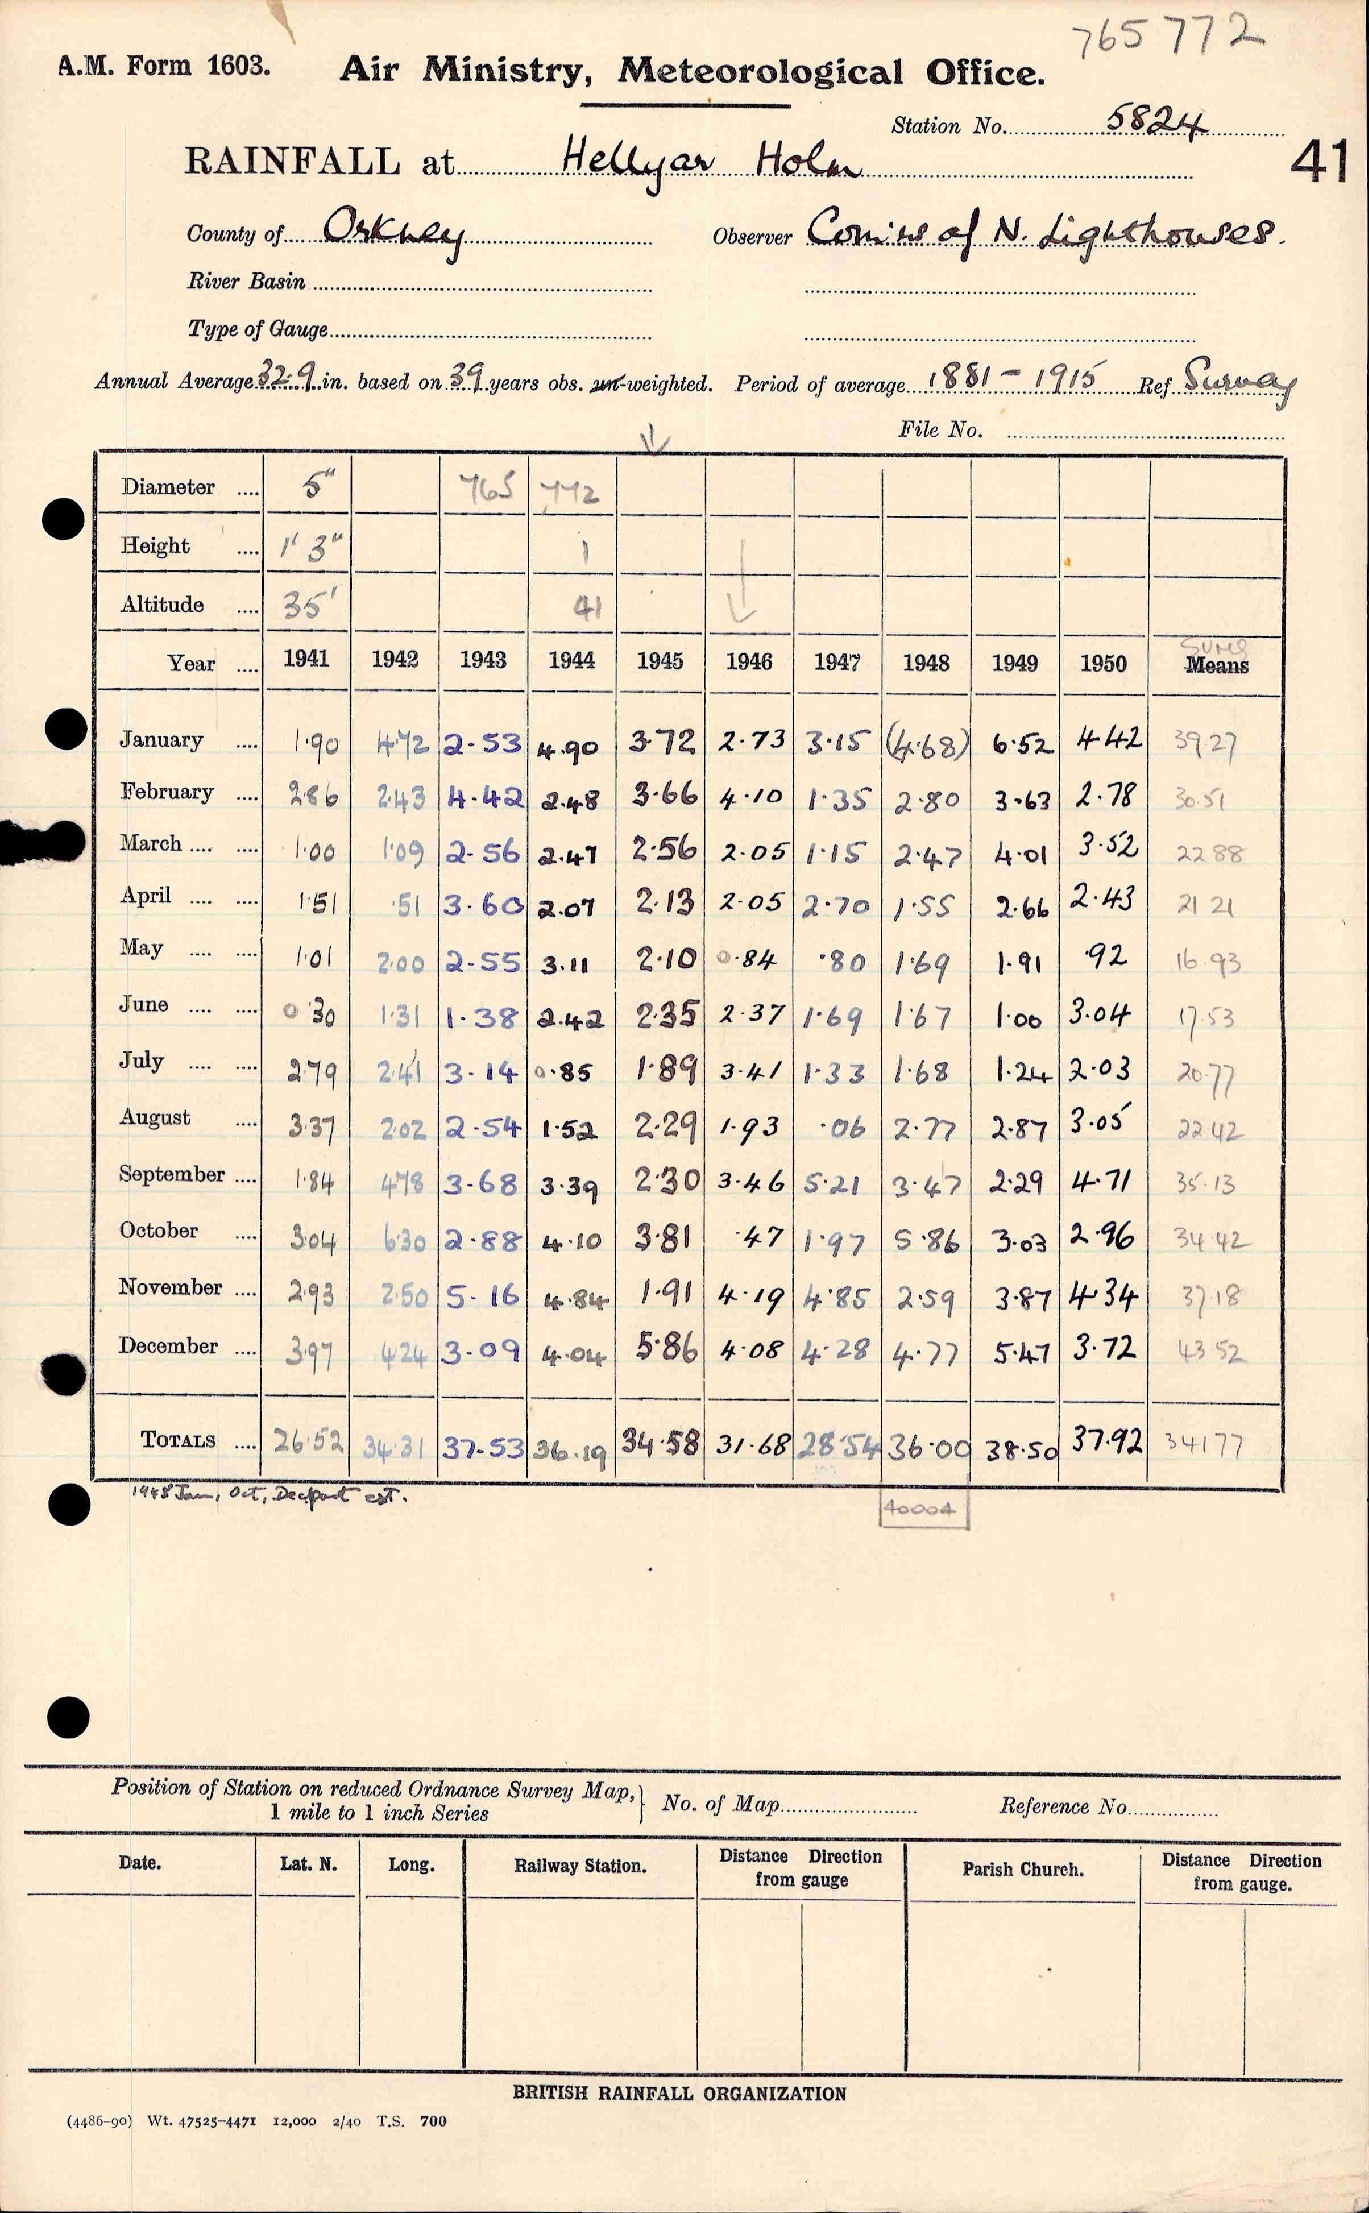 765772
A.M. Form 1603. Air Ministry, Meteorological Office.
Station No. 5824
41
RAINFALL at Hellyar Holm
County of Orkney Observer Com'rs of N. Lighthouses.
River Basin
Type of Gauge
Annual Average 32.9 in. based on 39 years obs. un-weighted. Period of average 1881 - 1915 Ref. Survey
File No.
Diameter .... 5" 765 772
Height .... 1' 3" 1
Altitude .... 35' 41
Sums
Year .... 1941 1942 1943 1944 1945 1946 1947 1948 1949 1950 Means
January .... 1.90 4.72 2.53 4.90 3.72 2.73 3.15 (4.68) 6.52 4.42 39.27
February .... 2.86 2.43 4.42 2.48 3.66 4.10 1.35 2.80 3.63 2.78 30.51
March .... .... 1.00 1.09 2.56 2.47 2.56 2.05 1.15 2.47 4.01 3.52 22.88
April .... .... 1.51 .51 3.60 2.07 2.13 2.05 2.70 1.55 2.66 2.43 21.21
May .... .... 1.01 2.00 2.55 3.11 2.10 0.84 .80 1.69 1.91 .92 16.93
June .... .... 0.30 1.31 1.38 2.42 2.35 2.37 1.69 1.67 1.00 3.04 17.53
July .... .... 2.79 2.41 3.14 0.85 1.89 3.41 1.33 1.68 1.24 2.03 20.77
August .... 3.37 2.02 2.54 1.52 2.29 1.93 .06 2.77 2.87 3.05 22.42
September .... 1.84 4.78 3.68 3.39 2.30 3.46 5.21 3.47 2.29 4.71 35.13
October .... 3.04 6.30 2.88 4.10 3.81 .47 1.97 5.86 3.03 2.96 34.42
November .... 2.93 2.50 5.16 4.84 1.91 4.19 4.85 2.59 3.87 4.34 37.18
December .... 3.97 4.24 3.09 4.04 5.86 4.08 4.28 4.77 5.47 3.72 43.52
TOTALS .... 26.52 34.31 37.53 36.19 34.58 31.68 28.54 36.00 38.50 37.92 341.77
1948 Jan, Oct, Dec part est.
40004
Position of Station on reduced Ordnance Survey Map, } No. of Map Reference No.
1 mile to 1 inch Series
Date. Lat. N. Long. Railway Station. Distance Direction from gauge Parish Church. Distance Direction from gauge.
BRITISH RAINFALL ORGANIZATION
(4486-90) Wt. 47525-4471 12,000 2/40 T.S. 700